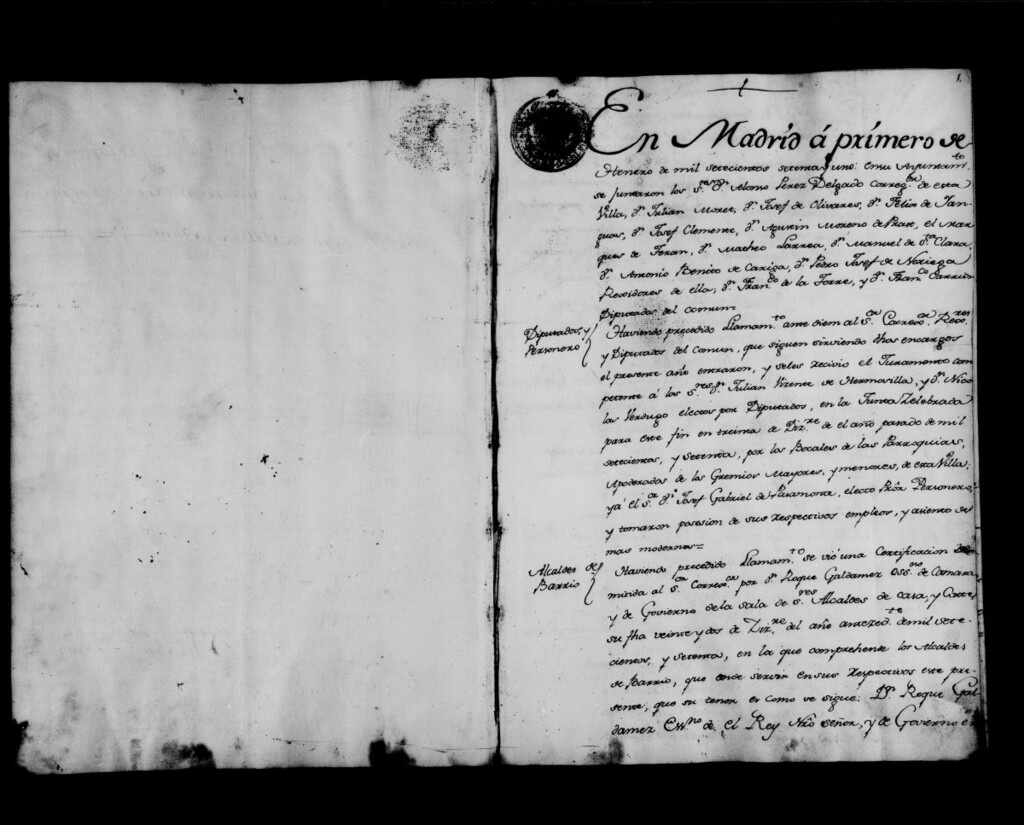 1.
En Madrid á primero de
Henero de mil setecientos setenta y uno: en su Ayuntam.to
se juntaron los S.res D.n Alonso Perez Delgado Correg.or de esta
Villa, D.n Julian Moret, D.n Josef de Olivares, D.n Felix de Yan-
guas, D.n Josef Clemente, D.n Agustin Moreno de Prate, el Mar-
ques de Feran, D.n Matheo Larrea, D.n Manuel de S.ta Clara,
D.n Antonio Benito de Cariga, D.n Pedro Josef de Noriega
Rexidores de ella, D.n Fran.co de la Torre, y D.n Fran.co Carrion
Diputados del comun=
Diputados, y
Personero
Haviendo precedido Llamam.to ante diem al S.or Correg.or Reg.res
y Diputados del Comun, que siguen sirviendo dhos encargos
el presente año entraron, y seles recivio el Juramento com
petente á los S.res D.n Julian Vizente de Hermosilla, y D.n Nico
las Verdugo electos por Diputados, en la Junta Zelebrada
para este fin en treinta de Diz.re de el año pasado de mil
setecientos, y setenta, por los Bocales de las Parroquias,
Apoderados de los Gremios Mayores, y menores, de esta Villa;
y á el S.or D.n Josef Gabriel de Paramona, electo Prôr Personero,
y tomaron posesion de sus respectivos empleos, y asiento de
mas modernos=
Alcaldes de
Barrio
Haviendo precedido Llamam.to se vió una Certificacion
mitida al S.or Correg.or por D.n Roque Galdamez Ess.no de Camara
y de Govierno de la Sala de S.res Alcaldes de casa, y Corte
su fha veinte y dos de Diz.re del año anteced.te de mil sete-
cientos, y setenta, en la que comprehende los Alcaldes
de Barrio, que an de servir en sus respectivos este pre-
sente, que su tenor es como se sigue: D.n Roque Gal-
damez Ess.no de, el Rey Nrô Señor, y de Govierno en